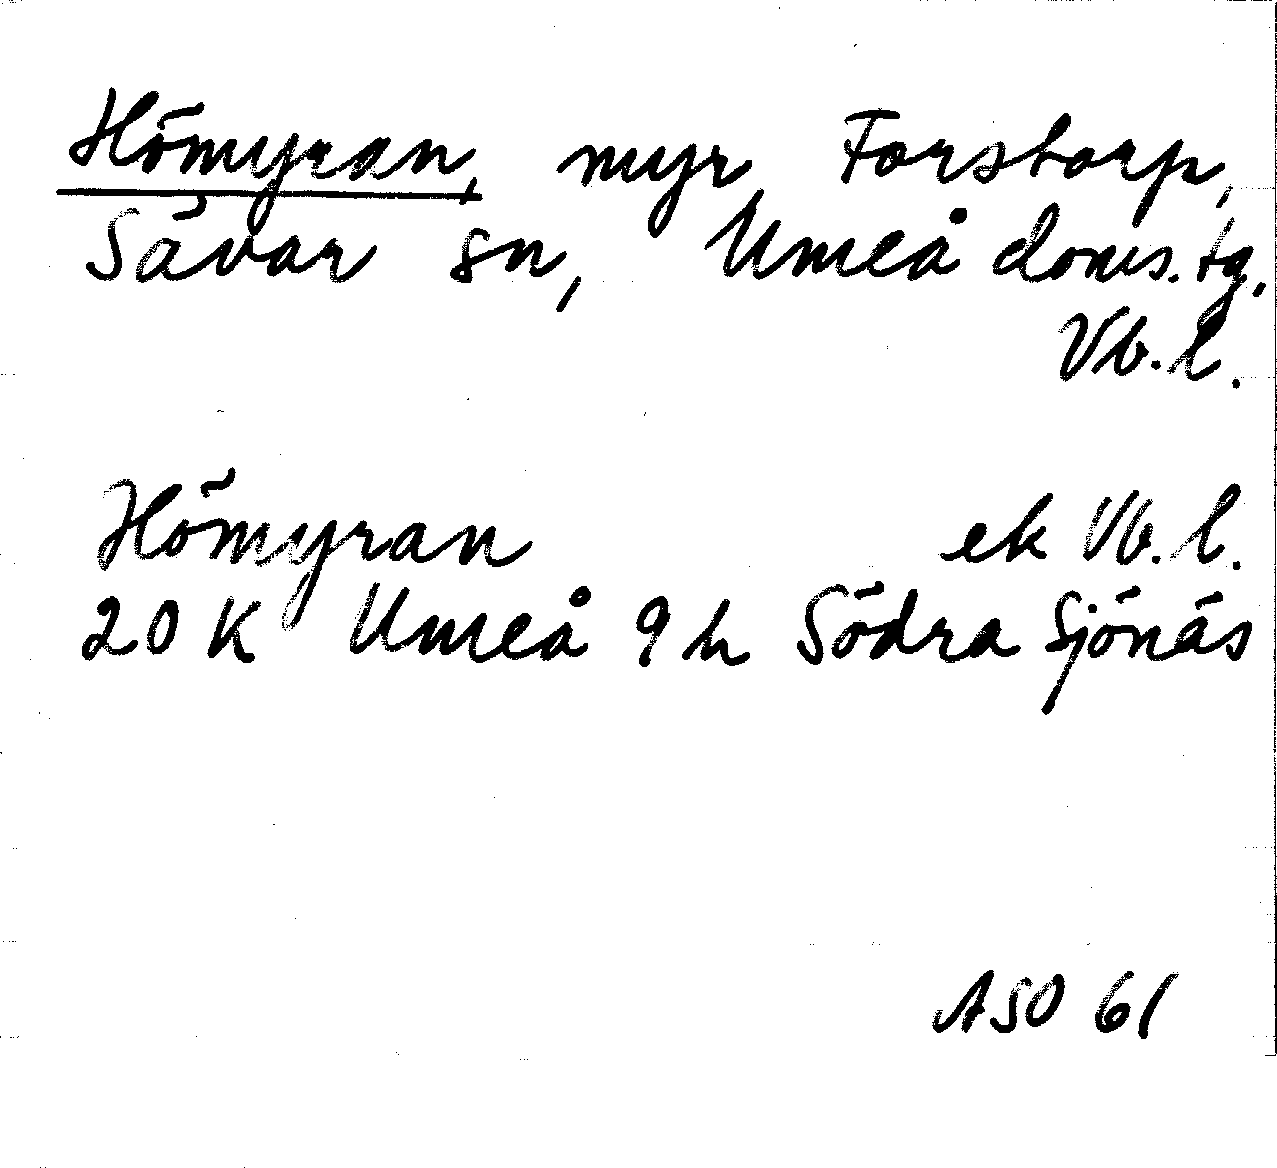 Hömyran, myr, Forstorp,
Sävar sn, Umeå doms.tg.
Vb.l.
Hömyran ek Vb.l.
20 K Umeå 9 h Södra Sjönäs
ASO 61